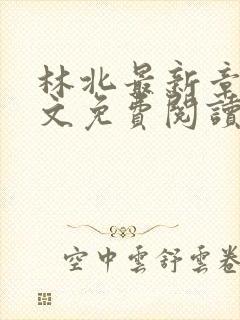 林北最新章
文免費閱讀
空中雲舒雲卷